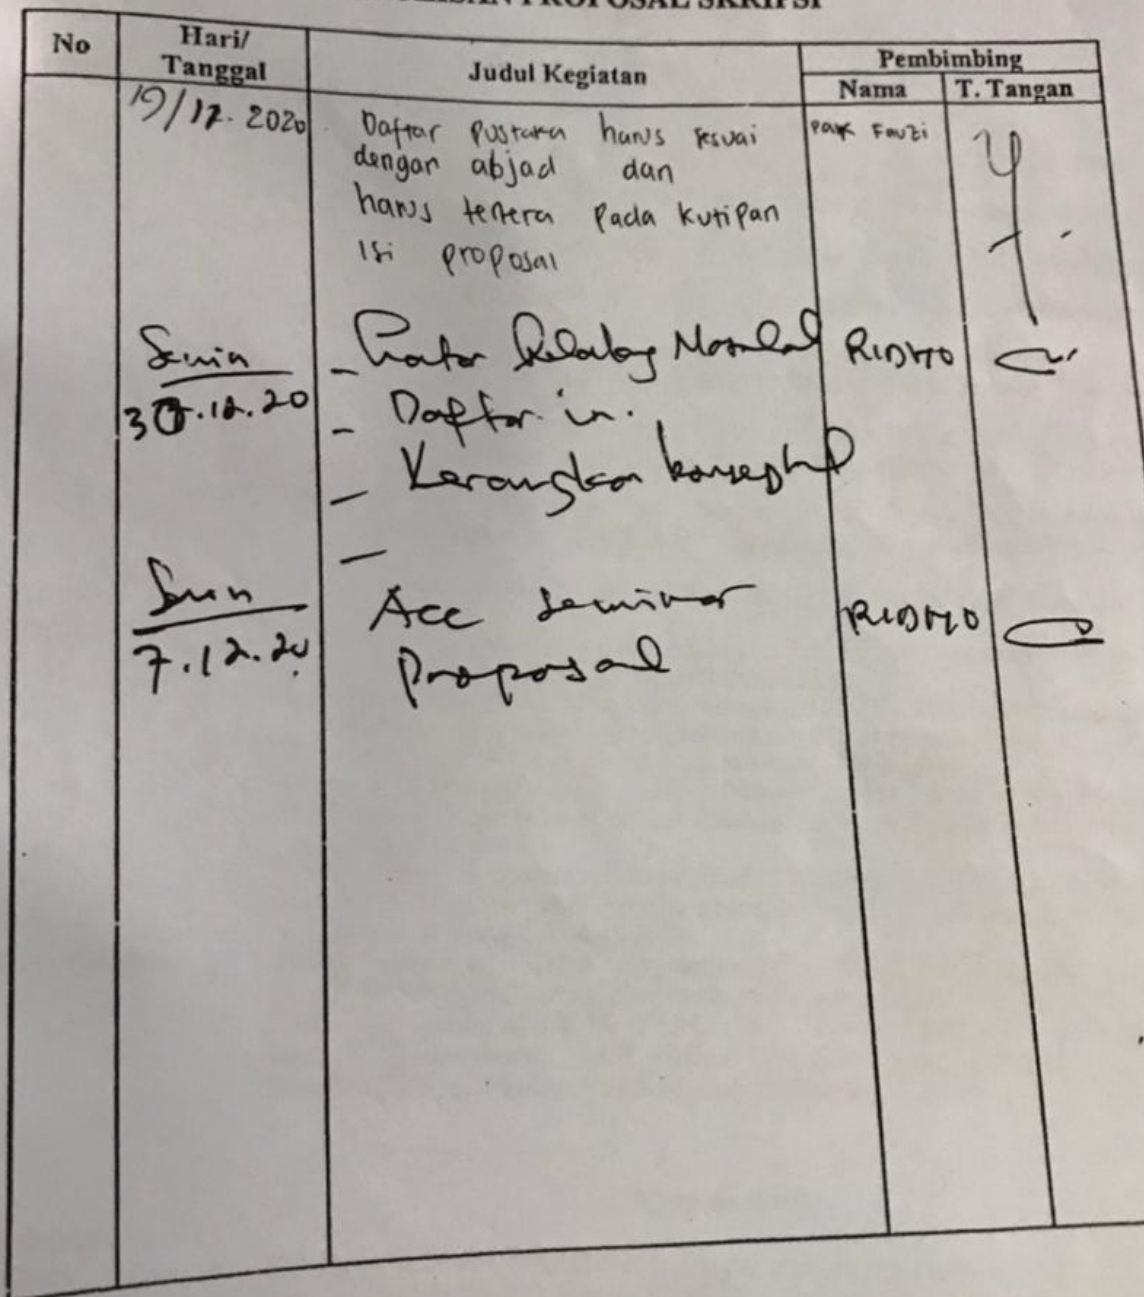 PROPOSAL SKRIPSI
No
Hari/
Tanggal
Judul Kegiatan
Pembimbing
Nama
T. Tangan
19/12.2020
Daftar pustaka harus sesuai
dengan abjad dan
harus tertera pada kutipan
isi proposal
pak Fauzi
Senin
.12.20
- Latar Belakang Masalah
- Daftar isi.
- Kerangka konseptual
-
RIDHO
Senin
7.12.20
Acc seminar
proposal
RIDHO